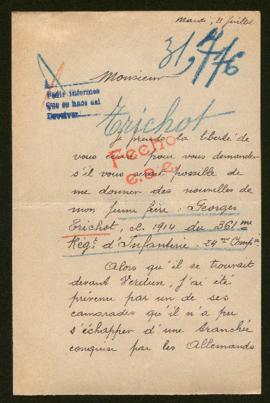 Mardi, 11 Juillet
31, 7/16
Monsieur
Pedir informes
Que se hace así
Devolver
Trichot
Je prends la liberté de
Fecho
vous écrire pour vous demander
s'il vous serait possible de
me donner des nouvelles de
mon jeune frère : Georges
Trichot, cl. 1914 du 361me
Regt d'Infanterie - 24me Compie
Alors qu'il se trouvait
devant Verdun, j'ai été
prévenu par un de ses
camarades qu'il n'a pu
s'échapper d'une tranchée
conquise par les Allemands